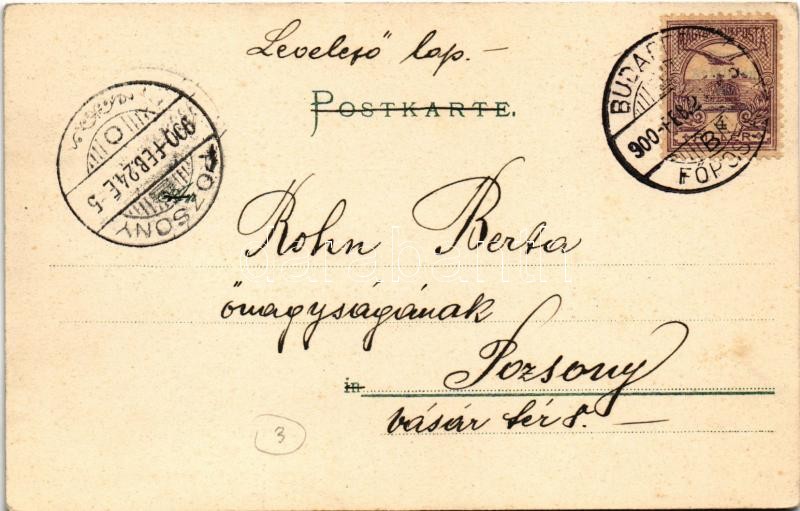 Levelező lap. —
POSTKARTE.
MAGYAR KIR. POSTA
BUDAPE
900
4
B
FŐPOS
POZSONY
900-FEB.24.E-5
Kohn Berta
őnagyságának
in
Pozsony
vásár tér 8. —
3
darabanth